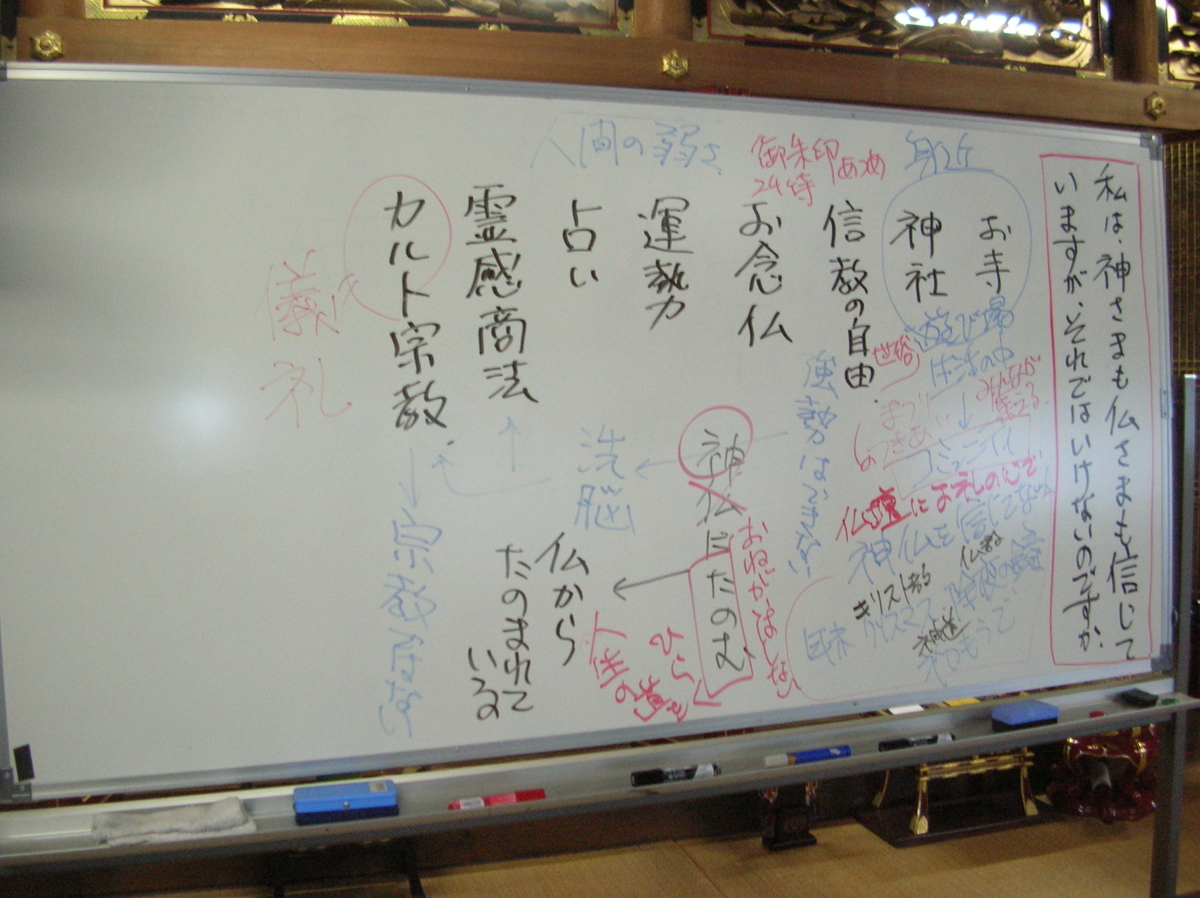 私は、神さまも仏さまも信じて
いますが、それではいけないのですか。
身近
お寺
神社
遊び場
生活の中
世俗
みんなが
まつり
つきあい
コミュニティ
仏壇にお礼の心で
神仏を信じてない
仏教
除夜の鐘
キリスト教
クリスマス
神道
初もうで
信教の自由
強勢はできない
御朱印あつめ
お念仏
人間の弱さ
運勢
占い
霊感商法
カルト宗教
儀礼
洗脳
神仏にたのむ
仏から
たのまれて
いる